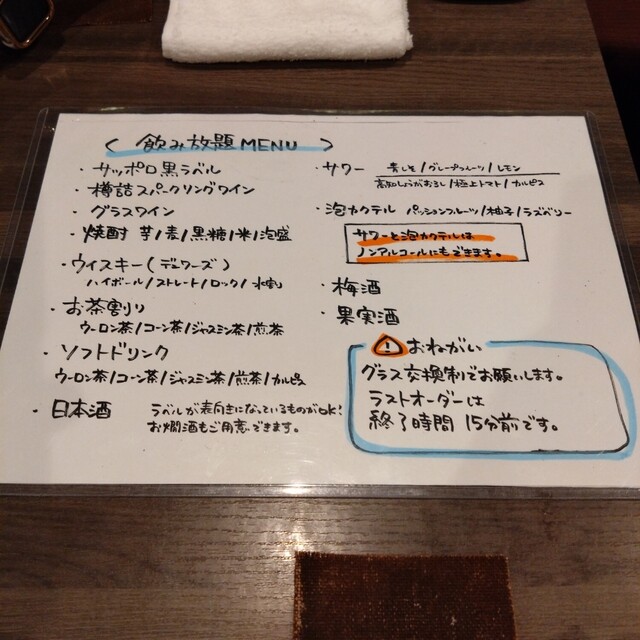 < 飲み放題 MENU >
・サッポロ黒ラベル
・樽詰スパークリングワイン
・グラスワイン
・焼酎 芋/麦/黒糖/米/泡盛
・ウイスキー(デュワーズ)
ハイボール/ストレート/ロック/水割り
・お茶割り
ウーロン茶/コーン茶/ジャスミン茶/煎茶
・ソフトドリンク
ウーロン茶/コーン茶/ジャスミン茶/煎茶/カルピス
・日本酒 ラベルが表向きになっているものがOK!
お燗酒もご用意できます。
・サワー 青しそ/グレープフルーツ/レモン
高知しょうがおろし/極上トマト/カルピス
・泡カクテル パッションフルーツ/柚子/ラズベリー
サワーと泡カクテルは
ノンアルコールにもできます。
・梅酒
・果実酒
おねがい
グラス交換制でお願いします。
ラストオーダーは
終了時間 15分前です。